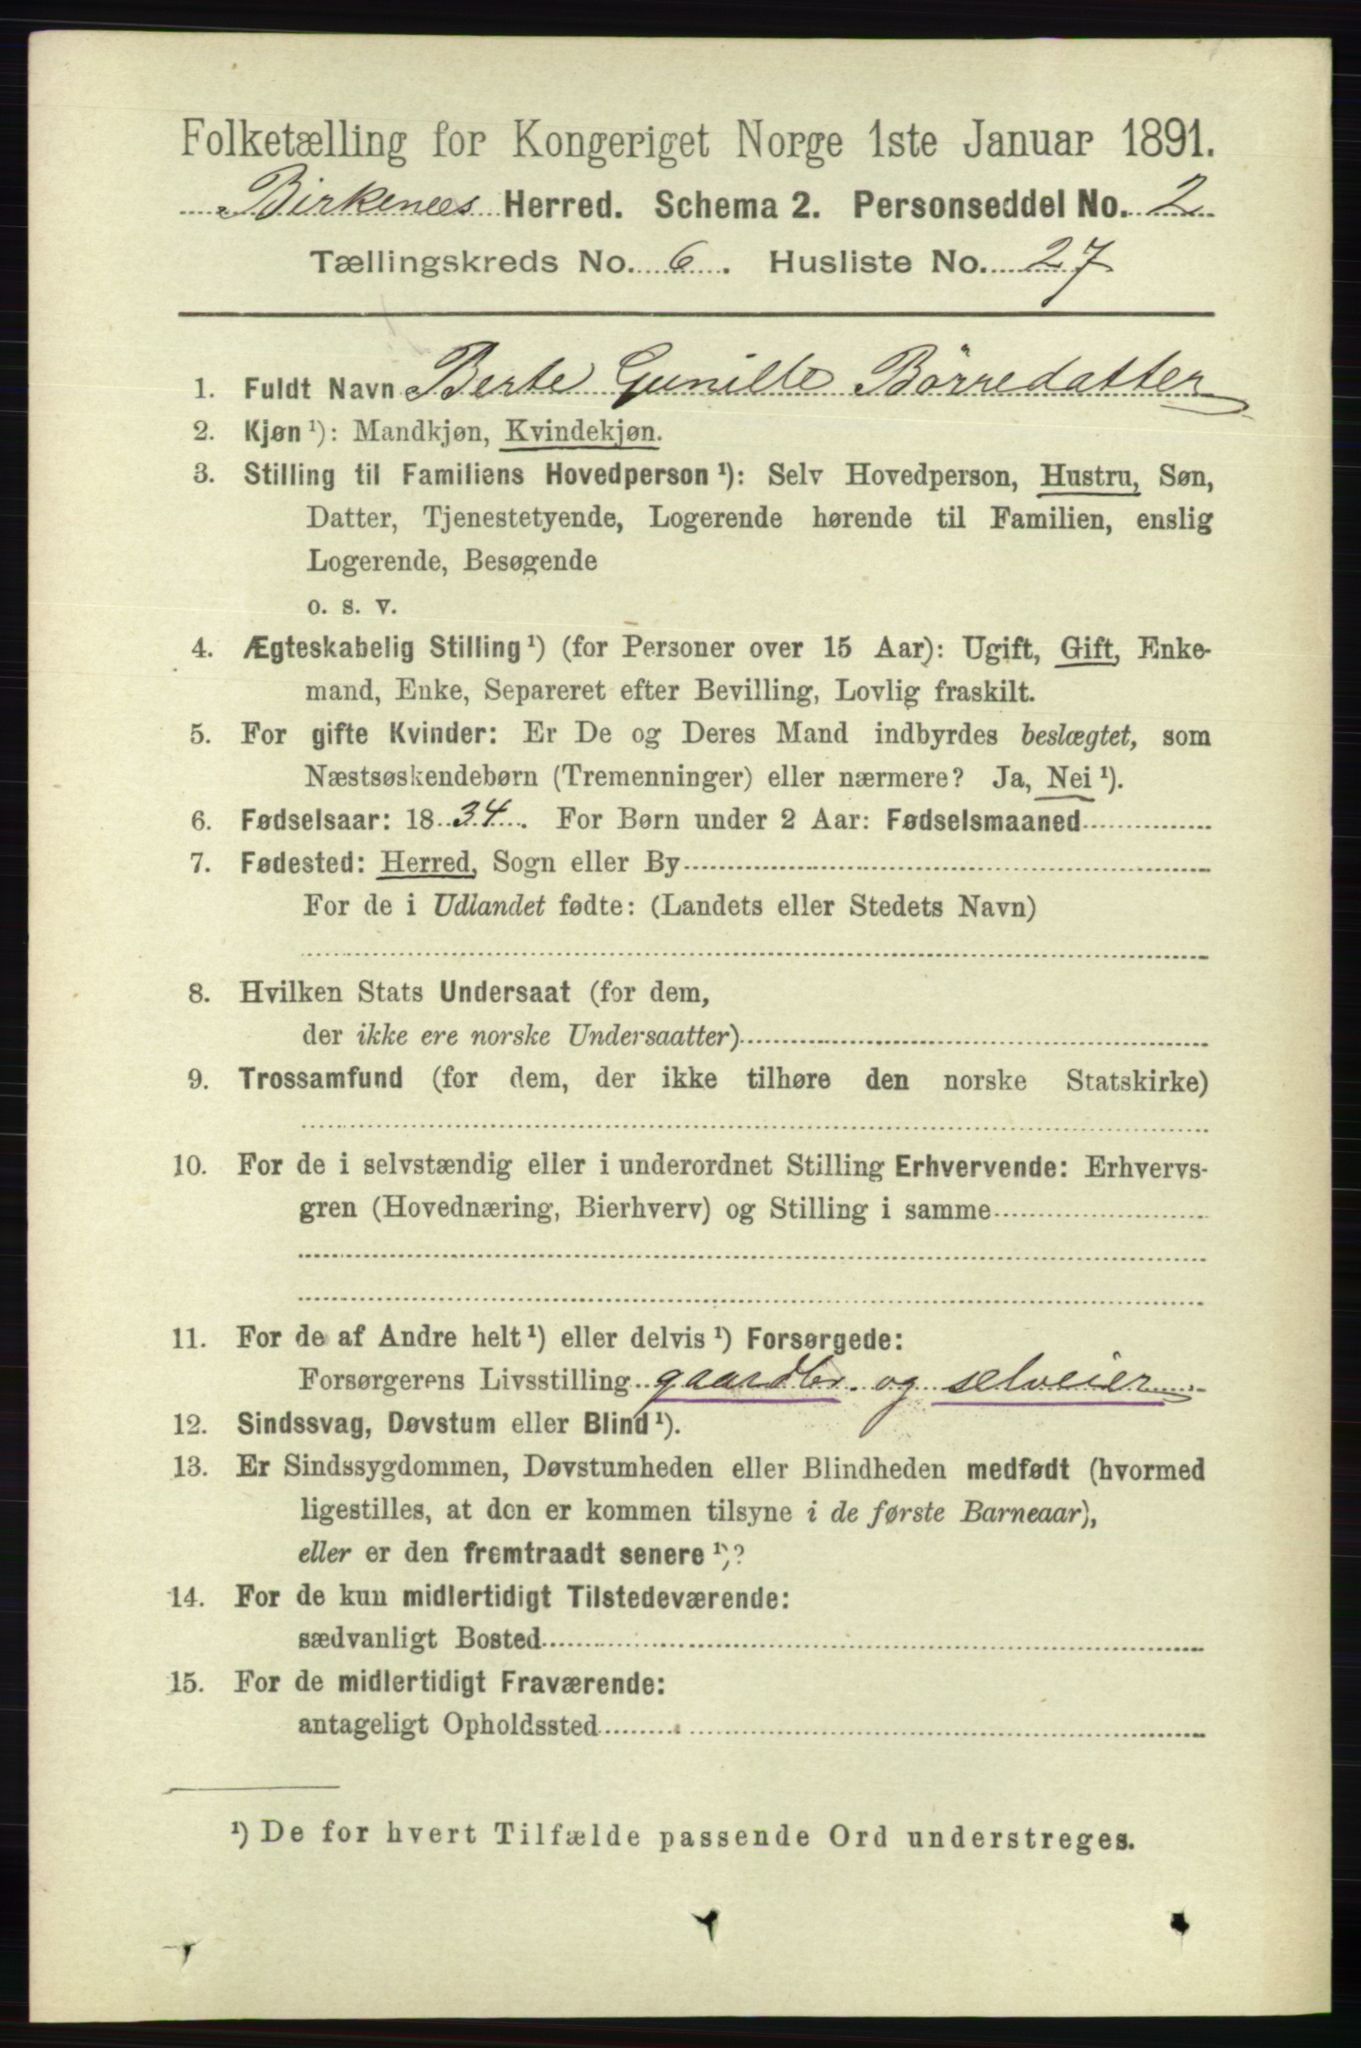 Folketælling for Kongeriget Norge 1ste Januar 1891.
Birkenes Herred. Schema 2. Personseddel No. 2
Tællingskreds No. 6. Husliste No. 27
1. Fuldt Navn Berte Gunille Börredatter
2. Kjøn ¹): Mandkjøn, Kvindekjøn.
3. Stilling til Familiens Hovedperson ¹): Selv Hovedperson, Hustru, Søn,
Datter, Tjenestetyende, Logerende hørende til Familien, enslig
Logerende, Besøgende
o. s. v.
4. Ægteskabelig Stilling ¹) (for Personer over 15 Aar): Ugift, Gift, Enke-
mand, Enke, Separeret efter Bevilling, Lovlig fraskilt.
5. For gifte Kvinder: Er De og Deres Mand indbyrdes beslægtet, som
Næstsøskendebørn (Tremenninger) eller nærmere? Ja, Nei ¹).
6. Fødselsaar: 1834. For Børn under 2 Aar: Fødselsmaaned
7. Fødested: Herred, Sogn eller By
For de i Udlandet fødte: (Landets eller Stedets Navn)
8. Hvilken Stats Undersaat (for dem,
der ikke ere norske Undersaatter)
9. Trossamfund (for dem, der ikke tilhøre den norske Statskirke)
10. For de i selvstændig eller i underordnet Stilling Erhvervende: Erhvervs-
gren (Hovednæring, Bierhverv) og Stilling i samme
11. For de af Andre helt ¹) eller delvis ¹) Forsørgede:
Forsørgerens Livsstilling gaardbr. og selveier
12. Sindssvag, Døvstum eller Blind ¹).
13. Er Sindssygdommen, Døvstumheden eller Blindheden medfødt (hvormed
ligestilles, at den er kommen tilsyne i de første Barneaar),
eller er den fremtraadt senere ¹)?
14. For de kun midlertidigt Tilstedeværende:
sædvanligt Bosted
15. For de midlertidigt Fraværende:
antageligt Opholdssted
¹) De for hvert Tilfælde passende Ord understreges.